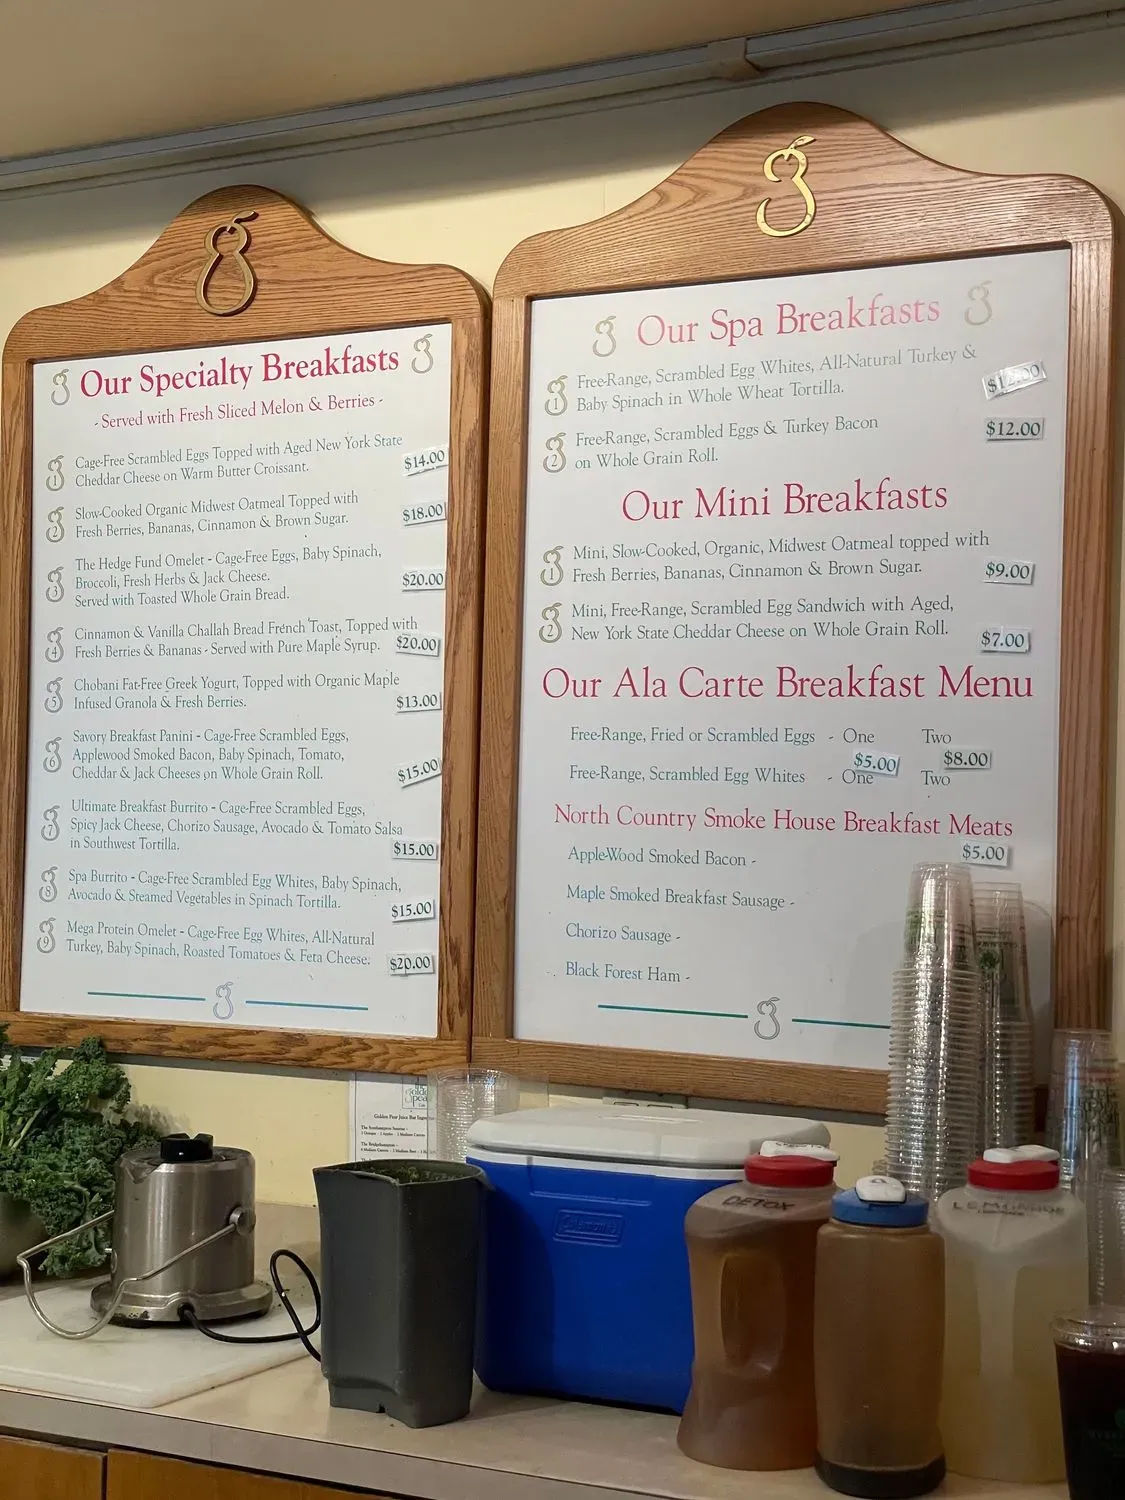 Our Specialty Breakfasts
- Served with Fresh Sliced Melon & Berries -
1 Cage-Free Scrambled Eggs Topped with Aged New York State
Cheddar Cheese on Warm Butter Croissant. $14.00
2 Slow-Cooked Organic Midwest Oatmeal Topped with
Fresh Berries, Bananas, Cinnamon & Brown Sugar. $18.00
The Hedge Fund Omelet - Cage-Free Eggs, Baby Spinach,
3 Broccoli, Fresh Herbs & Jack Cheese. $20.00
Served with Toasted Whole Grain Bread.
4 Cinnamon & Vanilla Challah Bread French Toast, Topped with
Fresh Berries & Bananas - Served with Pure Maple Syrup. $20.00
5 Chobani Fat-Free Greek Yogurt, Topped with Organic Maple
Infused Granola & Fresh Berries. $13.00
Savory Breakfast Panini - Cage-Free Scrambled Eggs,
6 Applewood Smoked Bacon, Baby Spinach, Tomato,
Cheddar & Jack Cheeses on Whole Grain Roll. $15.00
Ultimate Breakfast Burrito - Cage-Free Scrambled Eggs,
7 Spicy Jack Cheese, Chorizo Sausage, Avocado & Tomato Salsa
in Southwest Tortilla. $15.00
8 Spa Burrito - Cage-Free Scrambled Egg Whites, Baby Spinach,
Avocado & Steamed Vegetables in Spinach Tortilla. $15.00
9 Mega Protein Omelet - Cage-Free Egg Whites, All-Natural
Turkey, Baby Spinach, Roasted Tomatoes & Feta Cheese. $20.00
Our Spa Breakfasts
1 Free-Range, Scrambled Egg Whites, All-Natural Turkey &
Baby Spinach in Whole Wheat Tortilla. $12.00
2 Free-Range, Scrambled Eggs & Turkey Bacon $12.00
on Whole Grain Roll.
Our Mini Breakfasts
1 Mini, Slow-Cooked, Organic, Midwest Oatmeal topped with
Fresh Berries, Bananas, Cinnamon & Brown Sugar. $9.00
2 Mini, Free-Range, Scrambled Egg Sandwich with Aged,
New York State Cheddar Cheese on Whole Grain Roll. $7.00
Our Ala Carte Breakfast Menu
Free-Range, Fried or Scrambled Eggs - One Two
$5.00 $8.00
Free-Range, Scrambled Egg Whites - One Two
North Country Smoke House Breakfast Meats
$5.00
Apple-Wood Smoked Bacon -
Maple Smoked Breakfast Sausage -
Chorizo Sausage -
Black Forest Ham -
Golden Pear Juice Bar
Coleman
DETOX
LEMONADE